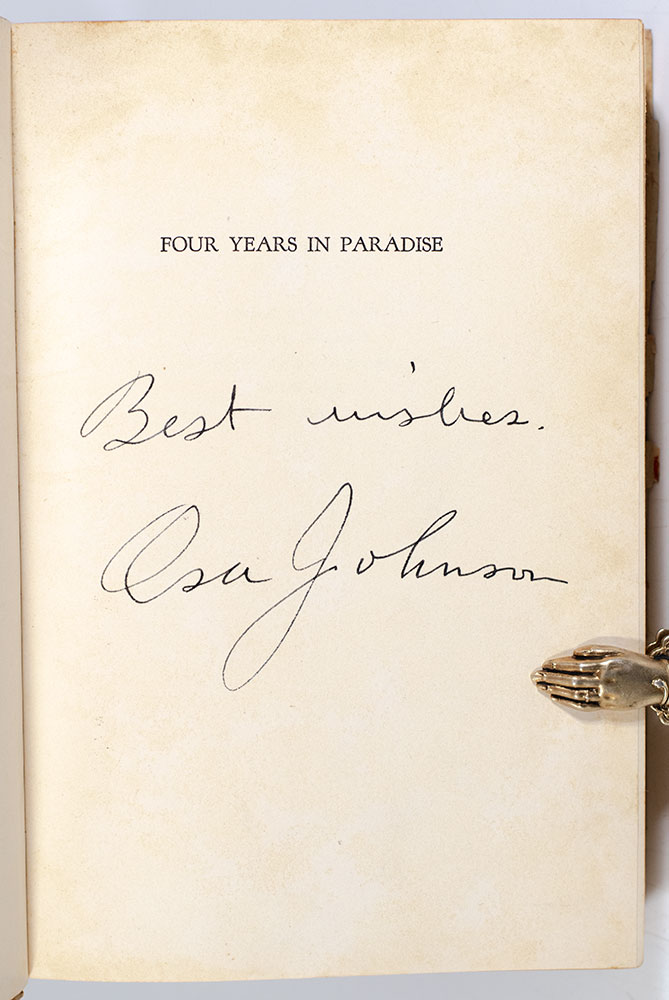 FOUR YEARS IN PARADISE
Best wishes.
Osa Johnson